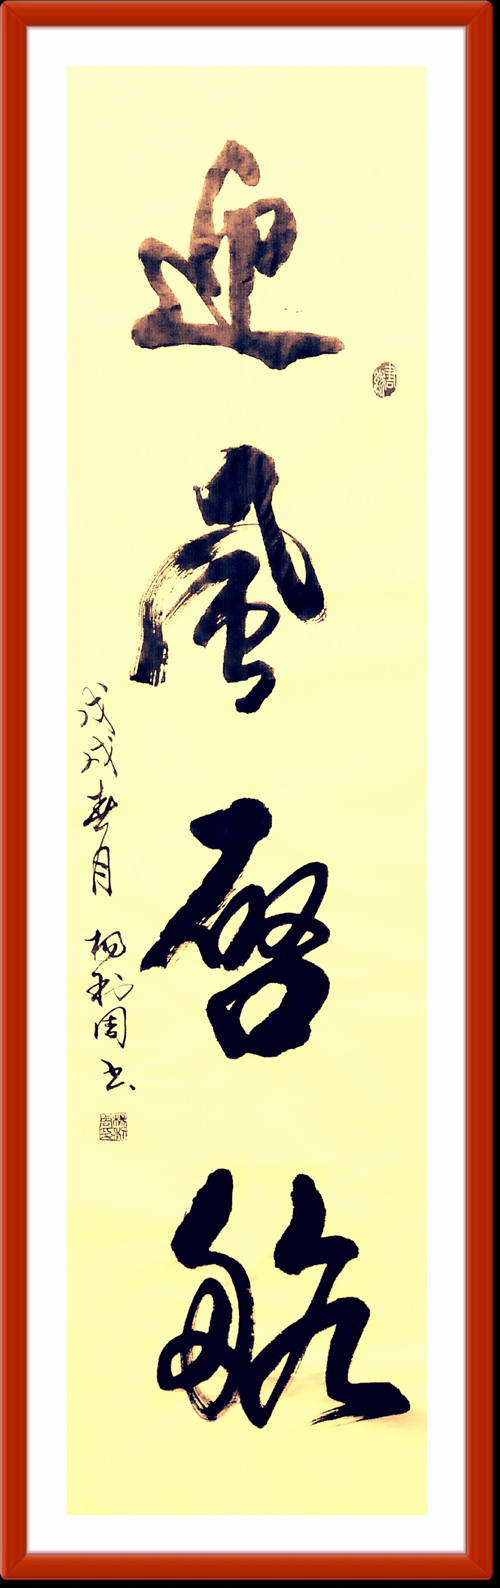 迎風啓航
戊戌春月 杨利周书